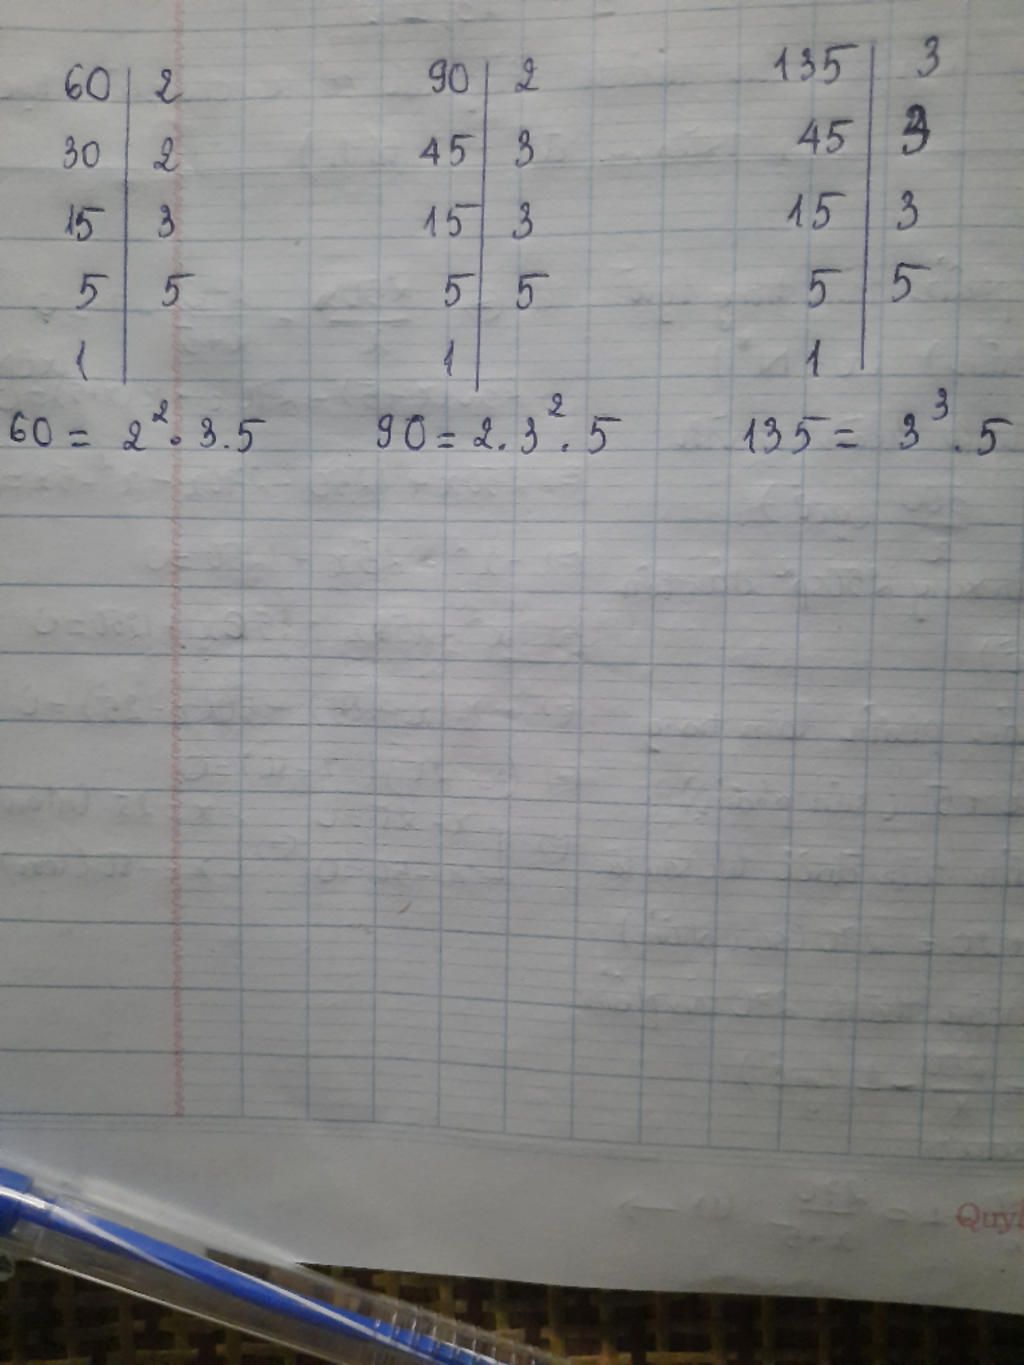 60 | 2 90 | 2 135 | 3
30 | 2 45 | 3 45 | 3
15 | 3 15 | 3 15 | 3
5 | 5 5 | 5 5 | 5
1 | 1 | 1 |
60 = 2². 3. 5 90 = 2. 3². 5 135 = 3³. 5